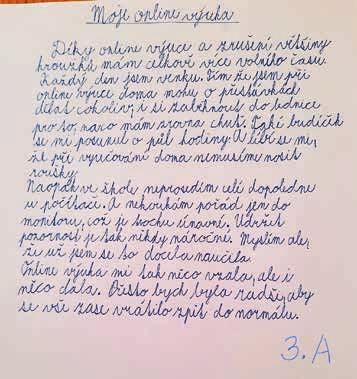 Moje online výuka
Díky online výuce a zrušení většiny
kroužků mám celkově více volného času.
Každý den jsem venku. Tím že jsem při
online výuce doma mohu o přestávkách
dělat cokoliv, i si zaběhnout do lednice
pro to, na co mám zrovna chuť. Také budíček
se mi posunul o půl hodiny. A líbí se mi,
že při vyučování doma nemusíme nosit
roušky.
Naopak ve škole neprosedím celé dopoledne
u počítače. A nekoukám pořád jen do
monitoru, což je trochu únavné. Udržet
pozornost je tak někdy náročné. Myslím ale,
že už jsem se to docela naučila.
Online výuka mi tak něco vzala, ale i
něco dala. Přesto bych byla radši, aby
se vše zase vrátilo zpět do normálu.
3. A